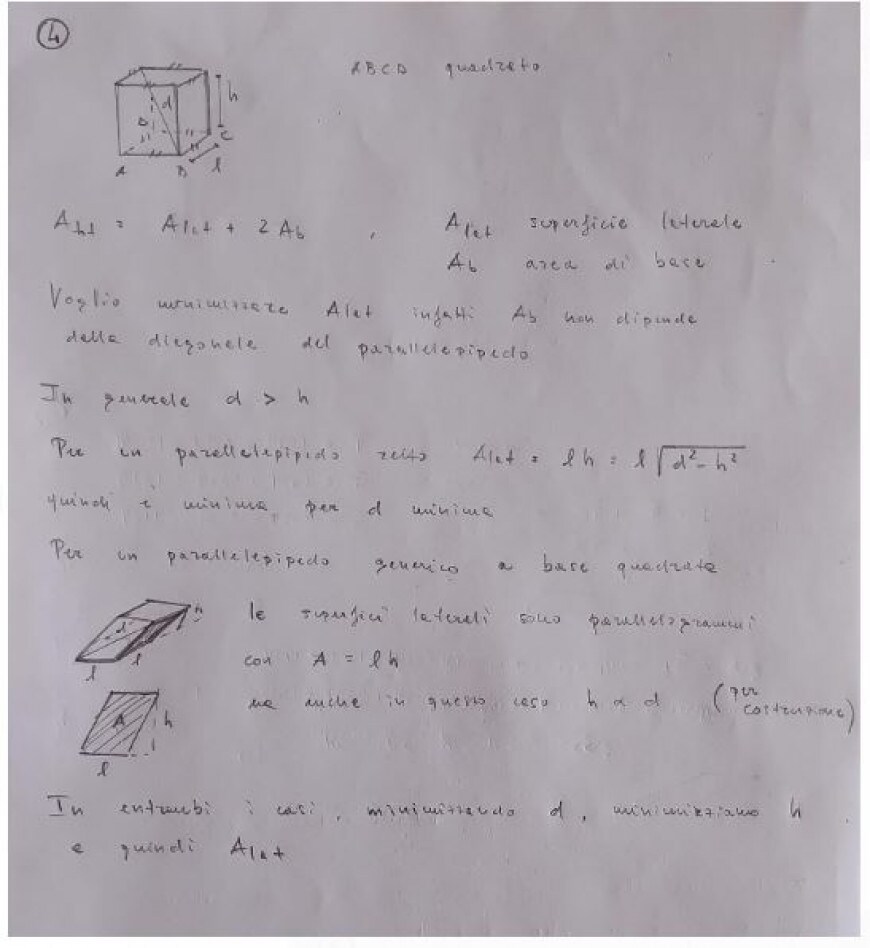 4
ABCD quadrato
d
h
D
C
A
B
l
A_tot = A_lat + 2 A_b , A_lat superficie laterale
A_b area di base
Voglio minimizzare A_lat infatti A_b non dipende
dalla diagonale del parallelepipedo
In generale d > h
Per un parallelepipedo retto A_lat = l h = l √(d² - h²)
quindi è minima per d minima
Per un parallelepipedo generico a base quadrata
le superfici laterali sono parallelogrammi
con A = l h
ma anche in questo caso h ∝ d (per costruzione)
d
h
l
l
A
h
l
In entrambi i casi, minimizzando d, minimizziamo h
e quindi A_lat